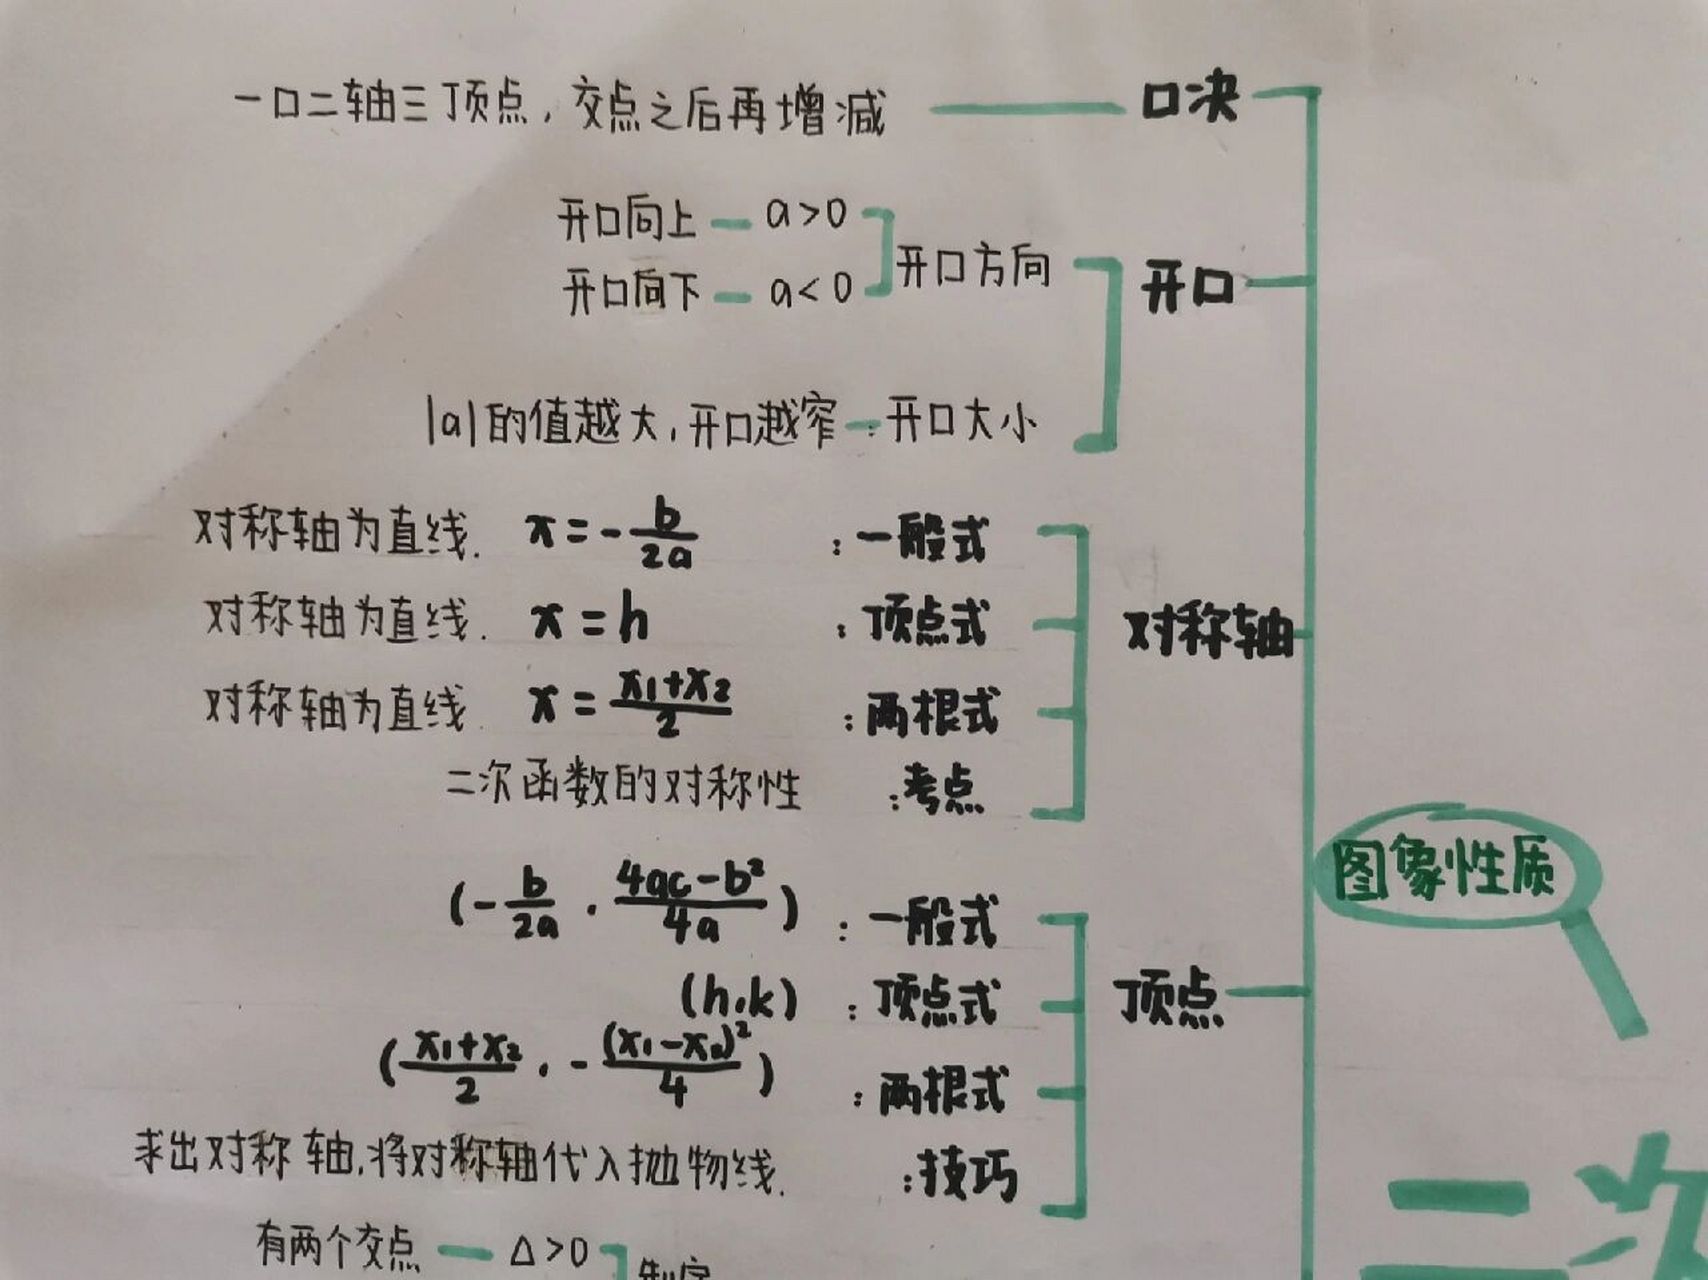 一口二轴三顶点，交点之后再增减 口决
开口向上 a>0
开口方向 开口
开口向下 a<0
|a|的值越大，开口越窄 : 开口大小
对称轴为直线. x=-b/2a :一般式
对称轴为直线. x=h :顶点式
对称轴
对称轴为直线. x=(x₁+x₂)/2 :两根式
二次函数的对称性 :考点
图象性质
(-b/2a . (4ac-b²)/4a) :一般式
(h.k) :顶点式
顶点
((x₁+x₂)/2 . -(x₁-x₂)²/4) :两根式
求出对称轴,将对称轴代入抛物线. :技巧
二次
有两个交点 Δ>0